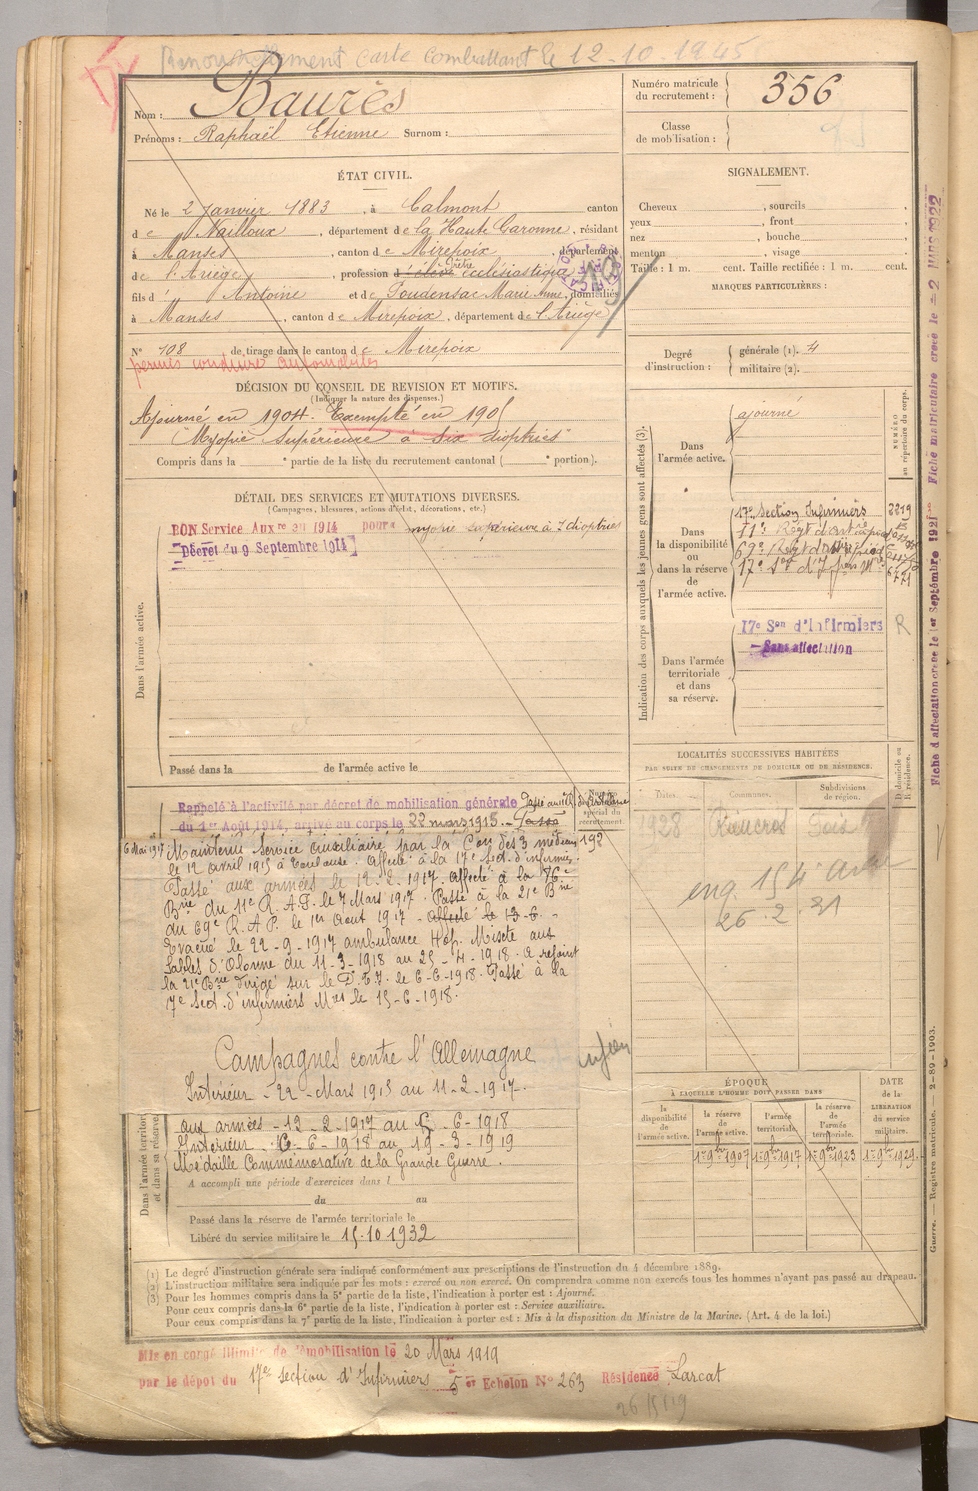 Renouvellement carte combattant le 12-10-1945
Nom : Baurès
Prénoms : Raphaël Etienne Surnom :
Numéro matricule du recrutement : 356
Classe de mobilisation :
ÉTAT CIVIL.
Né le 2 Janvier 1883, à Calmont canton
de Nailloux, département de la Haute Garonne, résidant
à Manses, canton de Mirepoix, département
de l'Ariège, profession d élève Prêtre ecclésiastique
fils d' Antoine et de Foudensac Marie Anne, domiciliés
à Manses, canton de Mirepoix, département de l'Ariège
N° 108 de tirage dans le canton de Mirepoix
permis conduire automobiles
SIGNALEMENT.
Cheveux , sourcils ,
yeux , front ,
nez , bouche ,
menton , visage .
Taille : 1 m. cent. Taille rectifiée : 1 m. cent.
MARQUES PARTICULIÈRES :
Degré d'instruction : générale (1). 4
militaire (2).
DÉCISION DU CONSEIL DE REVISION ET MOTIFS.
(Indiquer la nature des dispenses.)
Ajourné en 1904. Exempté en 1905
"Myopie Supérieure à six dioptries"
Compris dans la e partie de la liste du recrutement cantonal ( e portion).
DÉTAIL DES SERVICES ET MUTATIONS DIVERSES.
(Campagnes, blessures, actions d'éclat, décorations, etc.)
BON Service Auxre en 1914 pour myopie supérieure à 7 dioptries
Décret du 9 Septembre 1914
Dans l'armée active.
Passé dans la de l'armée active le
Indication des corps auxquels les jeunes gens sont affectés (3).
NUMÉRO au répertoire du corps.
Dans l'armée active. ajourné
Dans la disponibilité ou dans la réserve de l'armée active.
17e Section Infirmiers 2219
11e Régt d'art
69e Régt d'art à pied
Dans l'armée territoriale et dans sa réserve.
17e Son d'Infirmiers R
Sans affectation
LOCALITÉS SUCCESSIVES HABITÉES
PAR SUITE DE CHANGEMENTS DE DOMICILE OU DE RÉSIDENCE.
Dates. Communes. Subdivisions de région. D domicile ou R résidence.
1928 Foix
26.2.31
Rappelé à l'activité par décret de mobilisation générale
du 1er Août 1914, arrivé au corps le 22 mars 1915. Passé
Numéro spécial du recrutement 192
6 Mai 1917 Maintenu Service Auxiliaire par la Con des 3 médecins
le 12 Avril 1915 à Toulouse. Affecté à la 17e Sect. d'infirmiers.
Passé aux armées le 12-2-1917. Affecté à la 76e
Brie du 11e R.A.P. le 7 Mars 1917. Passé à la 21e Brie
du 69e R.A.P. le 1er Aout 1917 - Affecté le 13-6-
Evacué le 22-9-1917 ambulance Hôp. Mixte aux
Sables d'Olonne du 11-3-1918 au 25-4-1918. A rejoint
la 21e Brie dirigé sur le D.T.I. le 6-6-1918. Passé à la
17e Sect. d'infirmiers Mres le 15-6-1918.
Campagnes contre l'Allemagne
Intérieur - 22-Mars 1915 au 11-2-1917.
Aux armées - 12-2-1917 au 5-6-1918
Intérieur - 6-6-1918 au 19-3-1919
Médaille Commémorative de la Grande Guerre.
Dans l'armée territoriale et dans sa réserve.
A accompli une période d'exercices dans l
du au
Passé dans la réserve de l'armée territoriale le
Libéré du service militaire le 15.10.1932
ÉPOQUE
À LAQUELLE L'HOMME DOIT PASSER DANS
la disponibilité de l'armée active. la réserve de l'armée active. l'armée territoriale. la réserve de l'armée territoriale.
DATE de la LIBÉRATION du service militaire.
1er 9bre 1907 1er 9bre 1917 1er 9bre 1923 1er 9bre 1929
(1) Le degré d'instruction générale sera indiqué conformément aux prescriptions de l'instruction du 4 décembre 1889.
(2) L'instruction militaire sera indiquée par les mots : exercé ou non exercé. On comprendra comme non exercés tous les hommes n'ayant pas passé au drapeau.
(3) Pour les hommes compris dans la 5e partie de la liste, l'indication à porter est : Ajourné.
Pour ceux compris dans la 6e partie de la liste, l'indication à porter est : Service auxiliaire.
Pour ceux compris dans la 7e partie de la liste, l'indication à porter est : Mis à la disposition du Ministre de la Marine. (Art. 4 de la loi.)
Mis en congé illimité de démobilisation le 20 Mars 1919
par le dépôt du 17e section d'Infirmiers 5e Echelon N° 263 Résidence Larcat
Fiche d'affectation créée le 1er Septembre 1921 Fiche matriculaire créée le 2 MARS 1922
Guerre. — Registre matricule. — 2-89-1903.